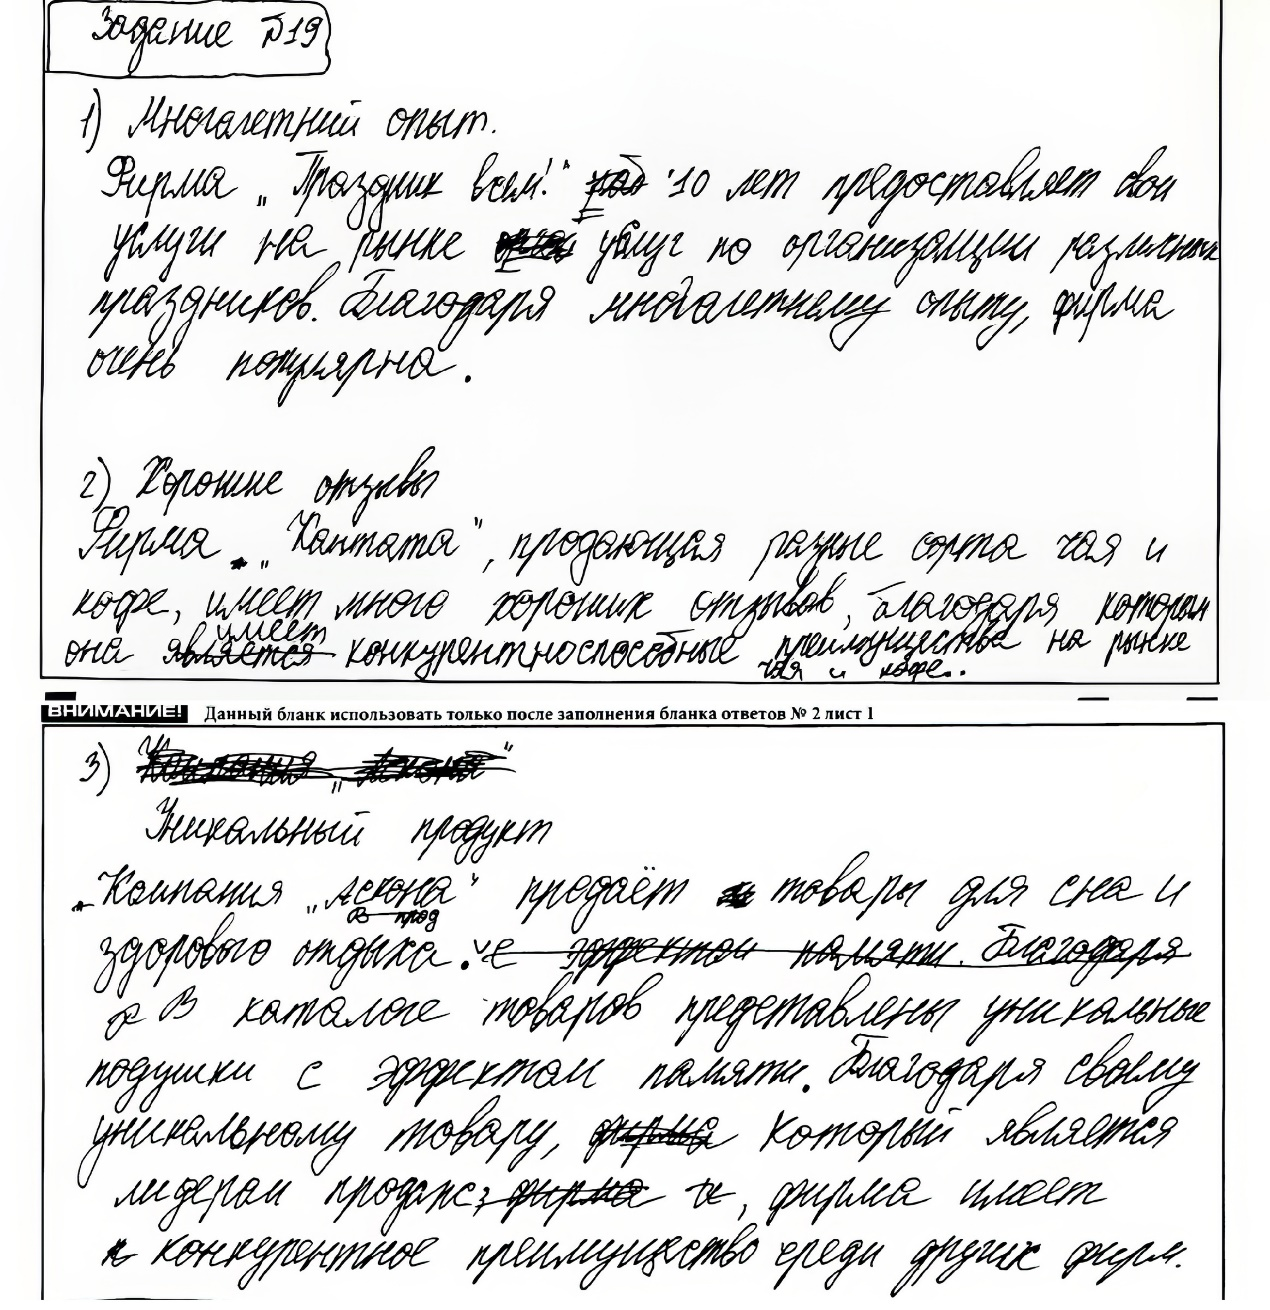 Задание №19
1) Многолетний опыт.
Фирма „Праздник всем!“ 10 лет предоставляет свои
услуги на рынке услуг по организации различных
праздников. Благодаря многолетнему опыту, фирма
очень популярна.
2) Хорошие отзывы
Фирма „Кантата“, продающая разные сорта чая и
кофе, имеет много хороших отзывов, благодаря которым
имеет
она является конкурентноспособные преимущества на рынке
чая и кофе..
ВНИМАНИЕ! Данный бланк использовать только после заполнения бланка ответов № 2 лист 1
3) Компания „Аскона“
Уникальный продукт
Компания „Аскона“ продаёт товары для сна и
В прод
здорового отдыха. с эффектом памяти. Благодаря
В каталоге товаров представлены уникальные
подушки с эффектом памяти. Благодаря своему
уникальному товару, фирма который является
лидером продаж, фирма , фирма имеет
конкурентное преимущество среди других фирм.